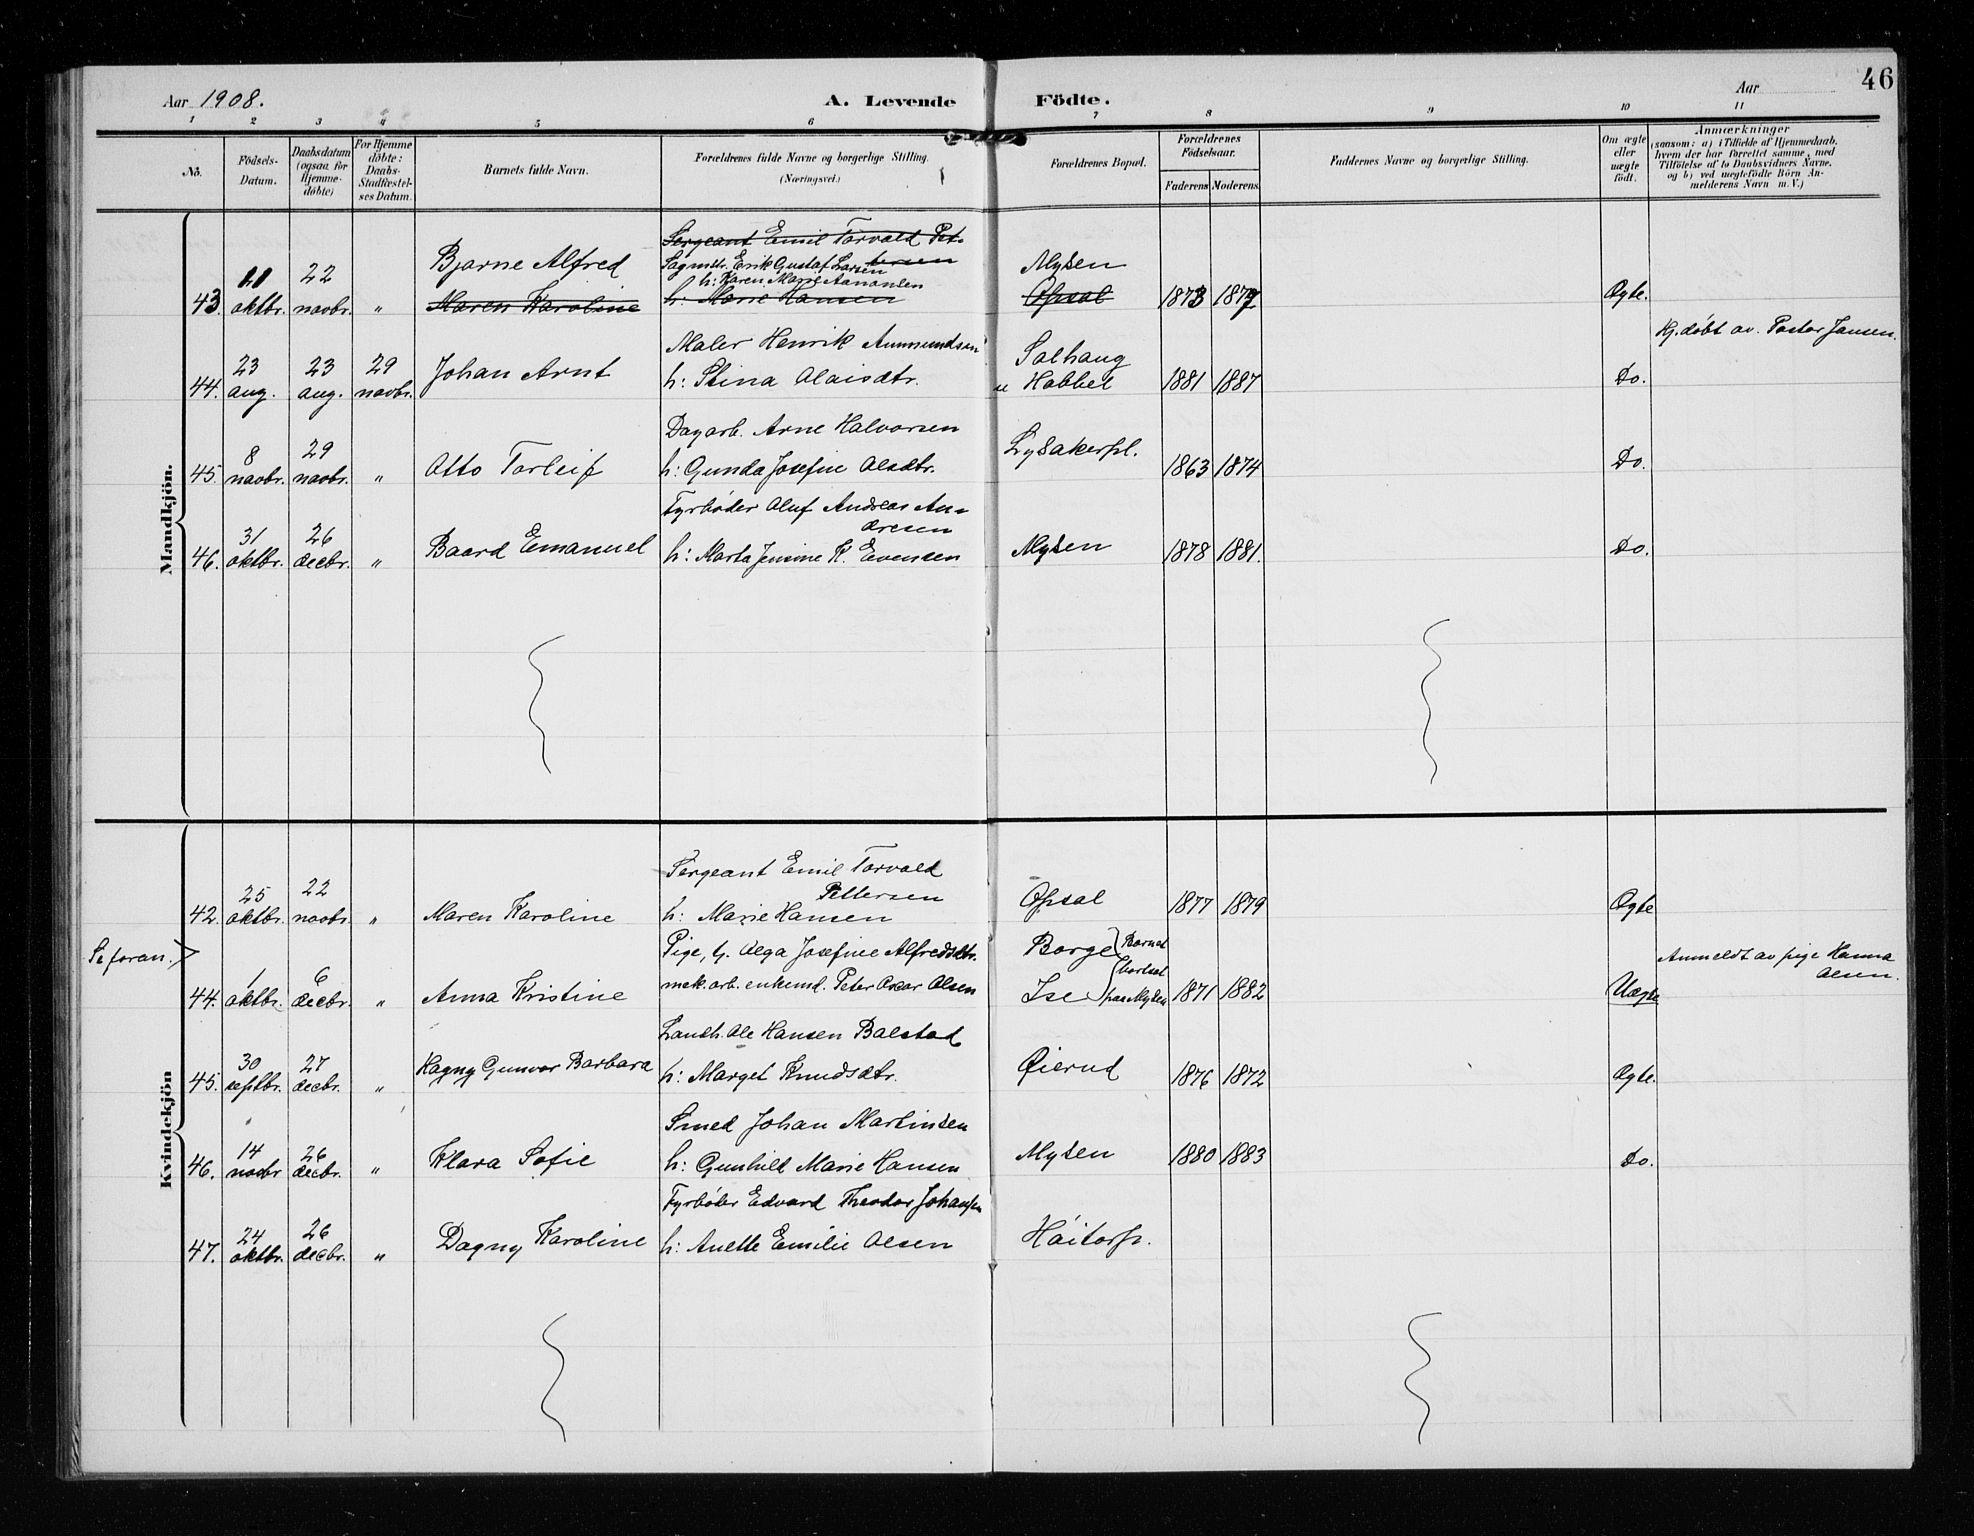 Aar 1908. A. Levende Födte. Aar 46
1 2 3 4 5 6 7 8 9 10 11
No. Födsels-Datum. Daabsdatum (ogsaa for Hjemmedöbte) For Hjemmedöbte: Daabs-Stadfæstelses Datum. Barnets fulde Navn. Forældrenes fulde Navne og borgerlige Stilling. (Næringsvei.) Forældrenes Bopæl. Forældrenes Födselsaar. Faderens Moderens Faddernes Navne og borgerlige Stilling. Om ægte eller uægte födt. Anmærkninger (saasom: a) i Tilfælde af Hjemmedaab, hvem der har forrettet samme, med Tilföielse af to Daabsvidners Navne, og b) ved uægtefödte Börn Anmelderens Navn m. V.)
Mandkjön.
Sergeant Emil Torvald Pet-
Bjarne Alfred Sagmstr. Erik Gustaf Larsen tersen Mysen
22 h: Karen Marie Aanonsen
43. oktbr. novbr. " Maren Karoline h: Marie Hansen Opsal 1873 1877 Ægte.
Maler Henrik Ammundsen Solhaug Hj. døbt av Pastor Jansen.
23 23 29
44. aug. aug. novbr. Johan Arnt h: Stina Olaisdtr. u Habbel 1881 1887 Do.
Dagarb. Arne Halvorsen
8 29
45. novbr. novbr. " Otto Torleif h: Gunda Josefine Olsdtr. Lysakerpl. 1863 1874 Do.
Fyrbøder Oluf Andreas An-
31 26 dresen
46. oktbr. decbr. " Baard Emanuel h: Marta Jensine K. Evensen Mysen 1878 1881. Do.
Kvindekjön
Sergeant Emil Torvald
25 22 Pettersen
42. oktbr. novbr. " Maren Karoline h: Marie Hansen Opsal 1877 1879 Ægte
Se foran. Pige, g. Olga Josefine Alfredsdtr. Borge Barnet Anmeldt av pige Hanna
1 6 bortsat Olsen.
44. oktbr. decbr. " Anna Kristine mek. arb. enkemd. Peter Oscar Olsen Ise paa Mysen 1871 1882 Uægte
Landh. Ole Hansen Balstad
30 27
45. septbr. decbr. " Hagny Gunvor Barbara h: Marget Knudsdtr. Øierud 1876 1872 Ægte.
Smed Johan Martinsen
14 26
46. novbr decbr. " Klara Sofie h: Gunhild Marie Hansen Mysen 1880 1883 Do.
Fyrbøder Edvard Theodor Johansen
24 26
47. oktbr. decbr. " Dagny Karoline h: Anette Emilie Olsen Høitorp.